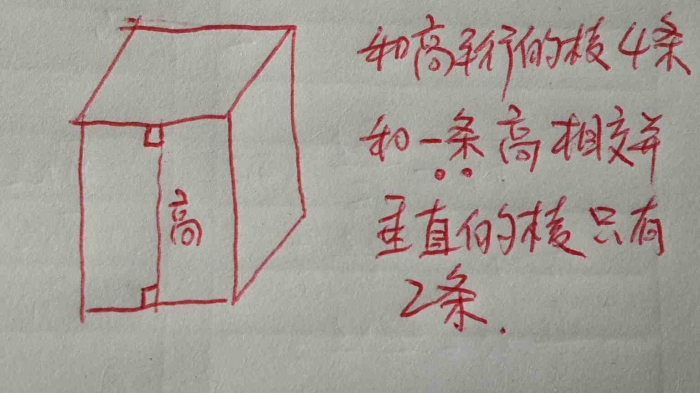 和高平行的棱4条
和一条高相交并
高
垂直的棱只有
2条.